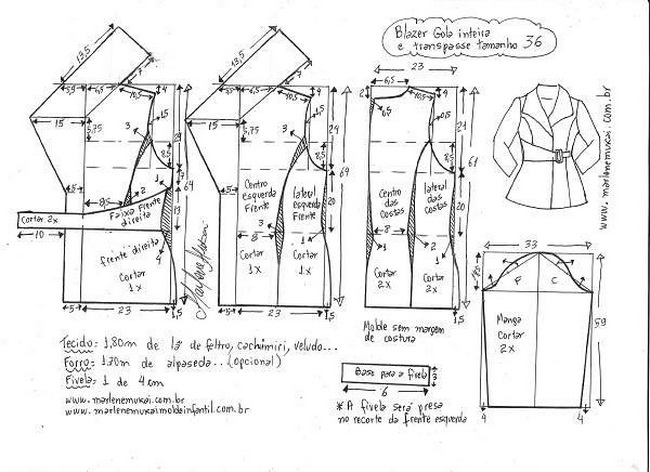 Blazer Gola inteira
e transpasse tamanho 36
13,5
7
5,5
6,5
10,5
4
15
5,75
3
1,5
24
2,5
7
64
5
8,5
2
1
Faixa frente
direita
13
Cortar 2x
10
4
frente direita
Cortar
1x
5
23
1,5
Marlene Mukai
13,5
7
5,5
6,5
10,5
4
15
5,75
3
1,5
24
2,5
69
5
Centro
esquerda
Frente
lateral
esquerda
Frente
20
8
2
1
Cortar
1x
Cortar
1x
5
23
1,5
23
6,5
2
10,5
4
0,5
1,5
21
2,5
61
Centro
das
Costas
lateral
das
Costas
20
8
2
1
Cortar
2x
Cortar
2x
1,5
Molde sem margem
de costura
www.marlenemukai.com.br
33
P
C
Manga
Cortar
2x
59
4
4
Tecido: 1,80m de lã de feltro, cachimiri, veludo...
Forro: 1,70m de alpaseda...(opcional)
Fivela: 1 de 4cm
www.marlenemukai.com.br
www.marlenemukaimoldeinfantil.com.br
Base para a fivela
3
6
* A fivela será presa
no recorte da frente esquerda